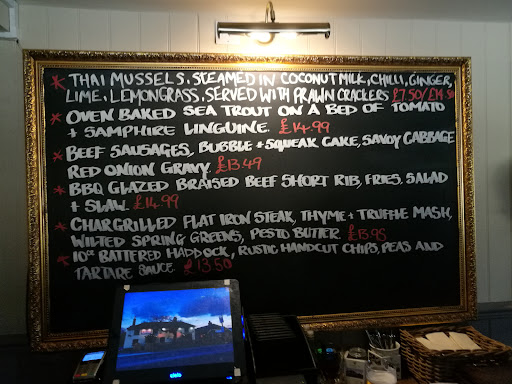 * THAI MUSSELS. STEAMED IN COCONUT MILK, CHILLI, GINGER,
LIME, LEMONGRASS. SERVED WITH PRAWN CRACKERS £7.50/£14.50
* OVEN BAKED SEA TROUT ON A BED OF TOMATO
+ SAMPHIRE LINGUINE. £14.99
* BEEF SAUSAGES, BUBBLE + SQUEAK CAKE, SAVOY CABBAGE
RED ONION GRAVY. £13.49
* BBQ GLAZED BRAISED BEEF SHORT RIB, FRIES. SALAD
+ SLAW. £14.99
* CHARGRILLED FLAT IRON STEAK, THYME + TRUFFLE MASH,
WILTED SPRING GREENS, PESTO BUTTER. £13.95
* 10oz BATTERED HADDOCK, RUSTIC HANDCUT CHIPS, PEAS AND
TARTARE SAUCE. £13.50
elo